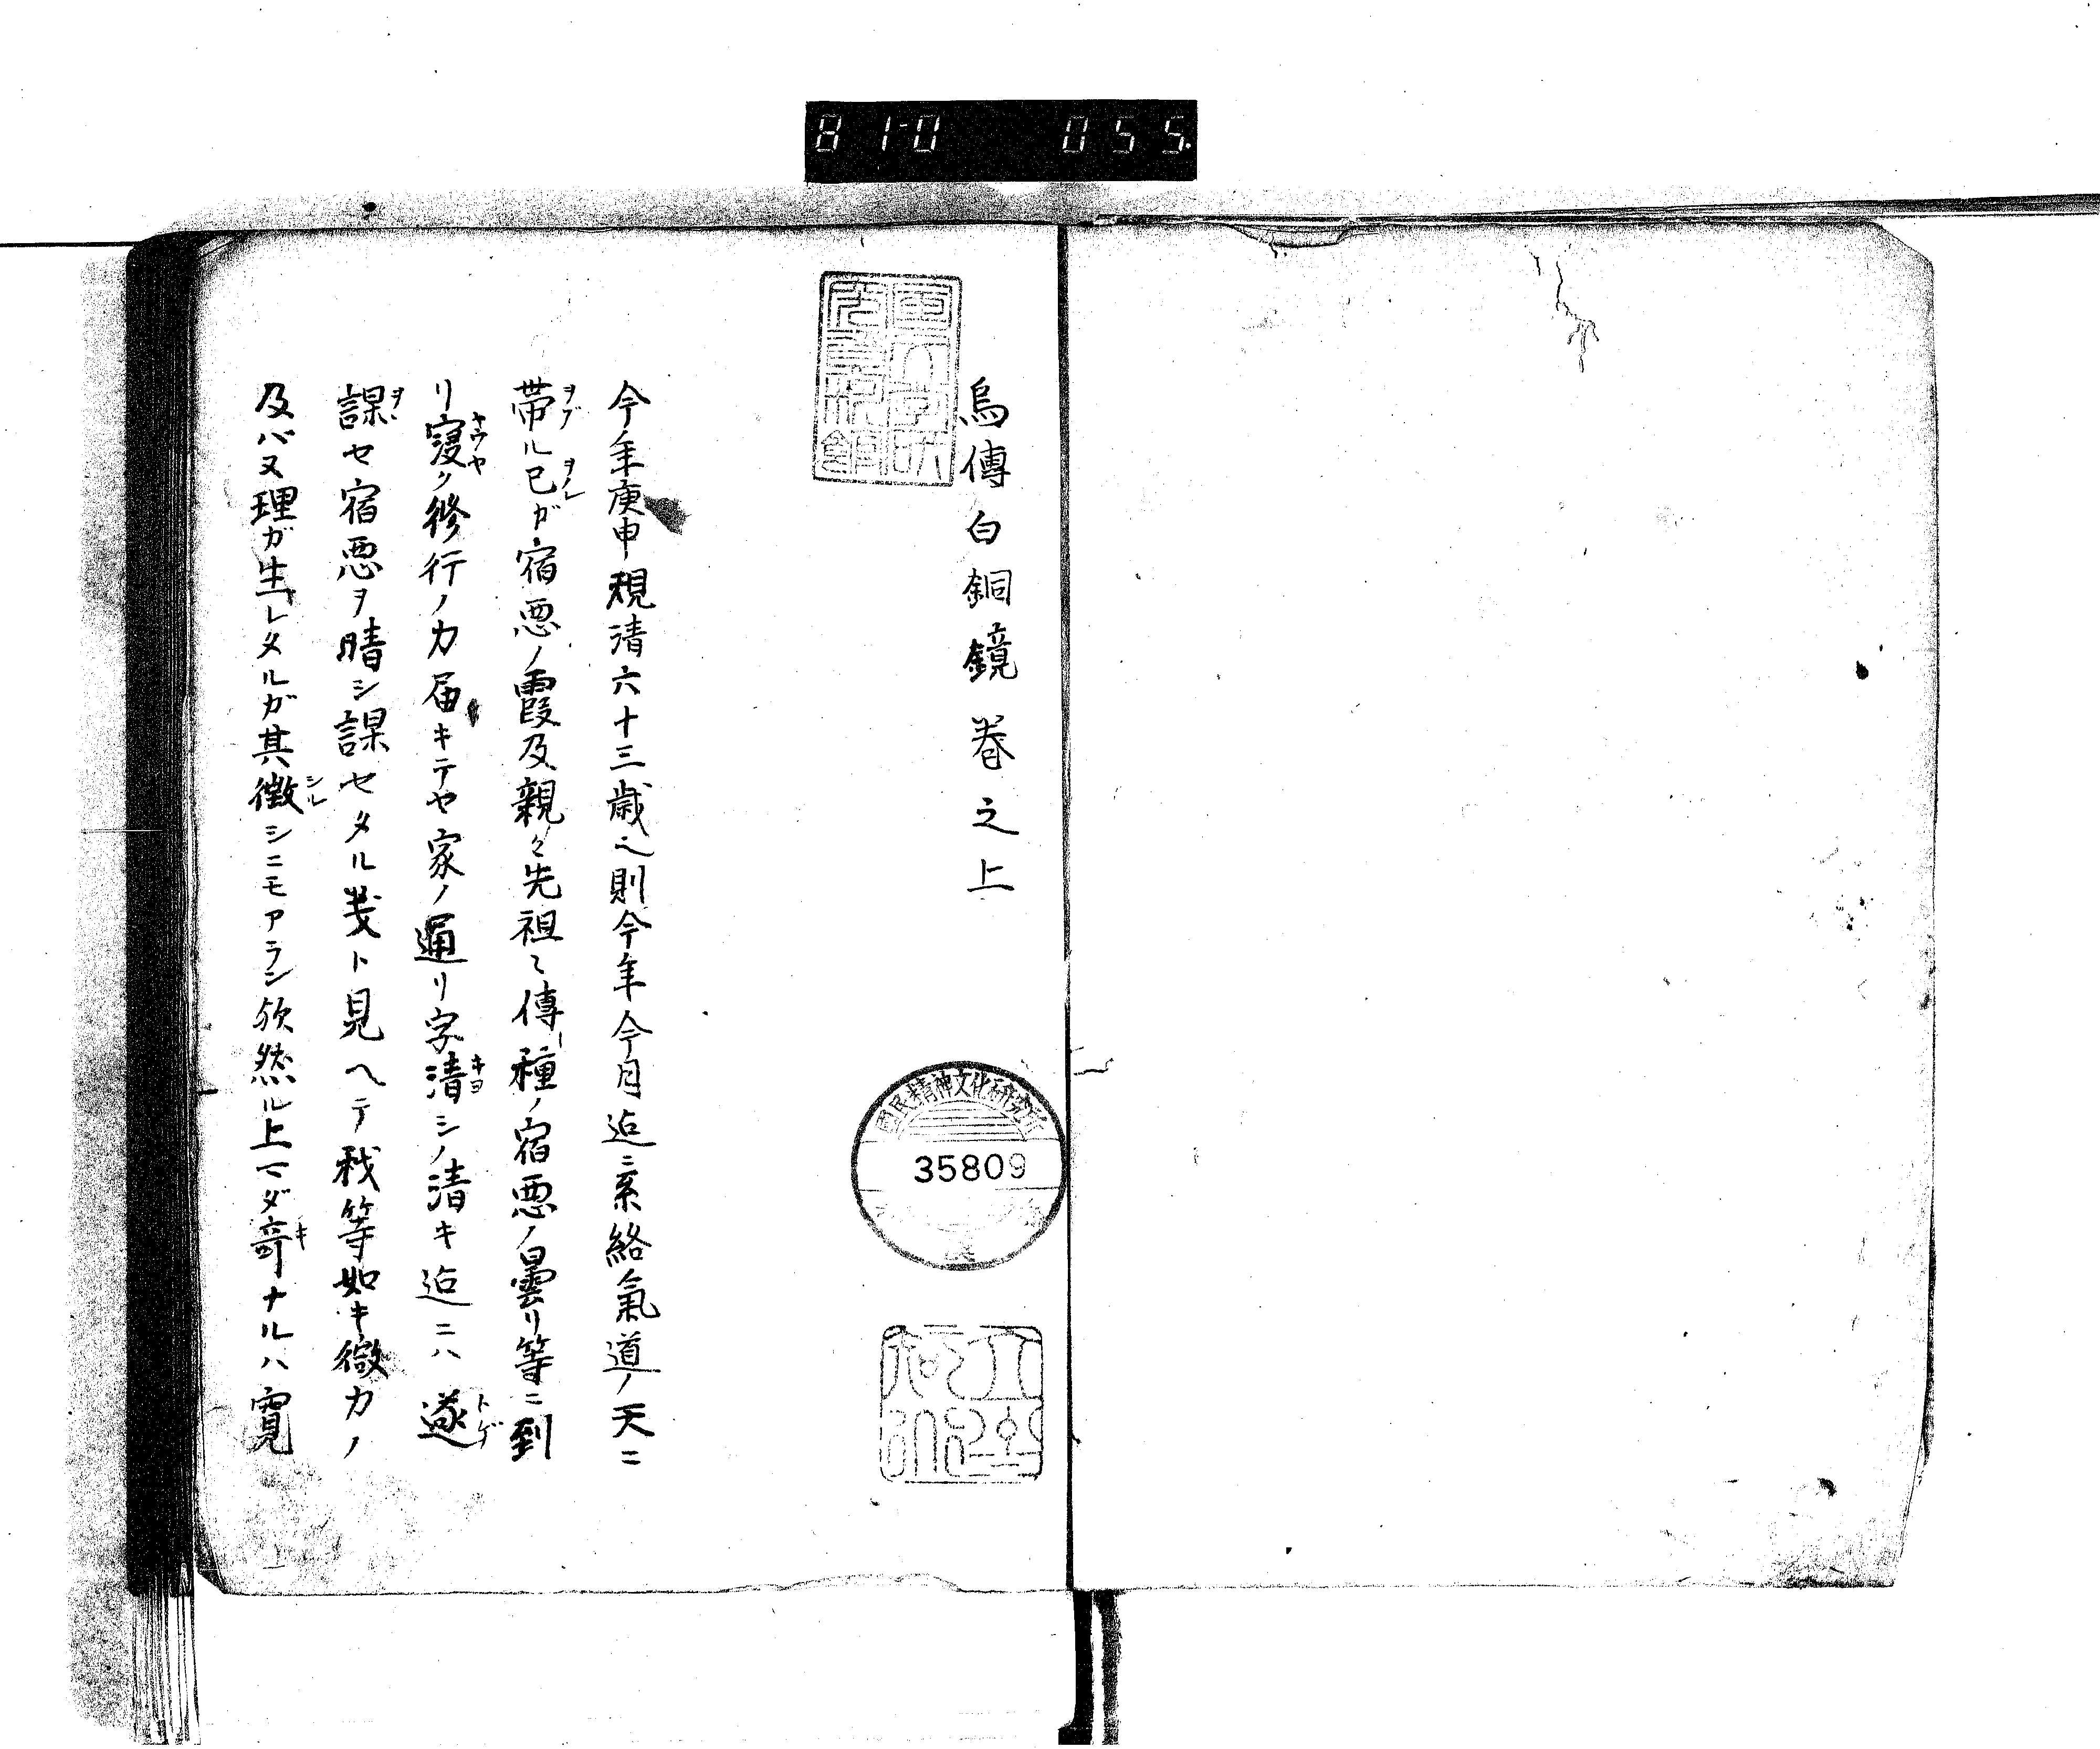 810 055
烏傳白銅鏡巻之上
今年庚申規清六十三歳也則今年今月迠ニ系絡氣道ノ天ニ
帯ル己ガ宿悪ノ霞及親々先祖〻傳ノ種ノ宿悪ノ曇リ等ニ到
リ寖ク修行ノ力届キテヤ家ノ通リ字清シノ清キ迠ニハ遂
課セ宿悪ヲ晴シ課セタル㕝ト見ヘテ我等如キ微力ノ
及バヌ理ガ生レタルガ其徴シニモアラン欤然ル上マダ竒ナルハ寛
國民精神文化研究所
35809